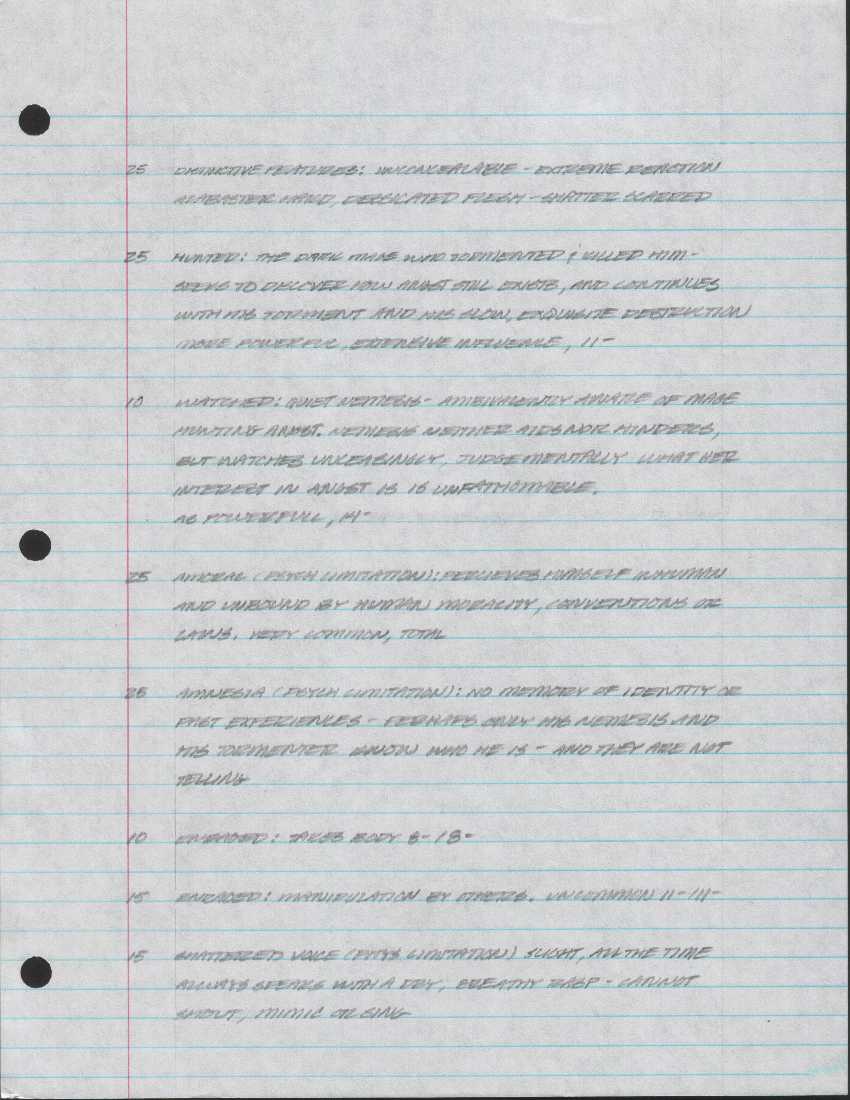 25 DISTINCTIVE FEATURES: UNCONCEALABLE - EXTREME REACTION
ALABASTER HAND, DESSICATED FLESH - SHATTER SCARRED
25 HUNTED: THE DARK MAGE WHO TORMENTED & KILLED HIM -
SEEKS TO DISCOVER HOW ANGST STILL EXISTS, AND CONTINUES
WITH HIS TORMENT AND HIS SLOW, EXQUISITE DESTRUCTION
MORE POWERFUL, EXTENSIVE INFLUENCE, 11-
10 WATCHED: QUIET NEMESIS - AMBIVALENTLY AWARE OF MAGE
HUNTING ANGST. NEMESIS NEITHER AIDS NOR HINDERS,
BUT WATCHES UNCEASINGLY, JUDGEMENTALLY WHAT HER
INTEREST IN ANGST IS IS UNFATHOMABLE.
AS POWERFULL, 14-
25 AMORAL (PSYCH LIMITATION): PERCIEVES HIMSELF INHUMAN
AND UNBOUND BY HUMAN MORALITY, CONVENTIONS OR
LAWS. VERY COMMON, TOTAL
25 AMNESIA (PSYCH LIMITATION): NO MEMORY OF IDENTITY OR
PAST EXPERIENCES - PERHAPS ONLY HIS NEMESIS AND
HIS TORMENTER KNOW WHO HE IS - AND THEY ARE NOT
TELLING
10 ENRAGED: TAKES BODY 8-
15 ENRAGED: MANIPULATION BY OTHERS. UNCOMMON 11-
15 SHATTERED VOICE (PHYS LIMITATION) SLIGHT, ALL THE TIME
ALLWAYS SPEAKS WITH A DRY, BREATHY RASP - CANNOT
SHOUT, MIMIC OR SING